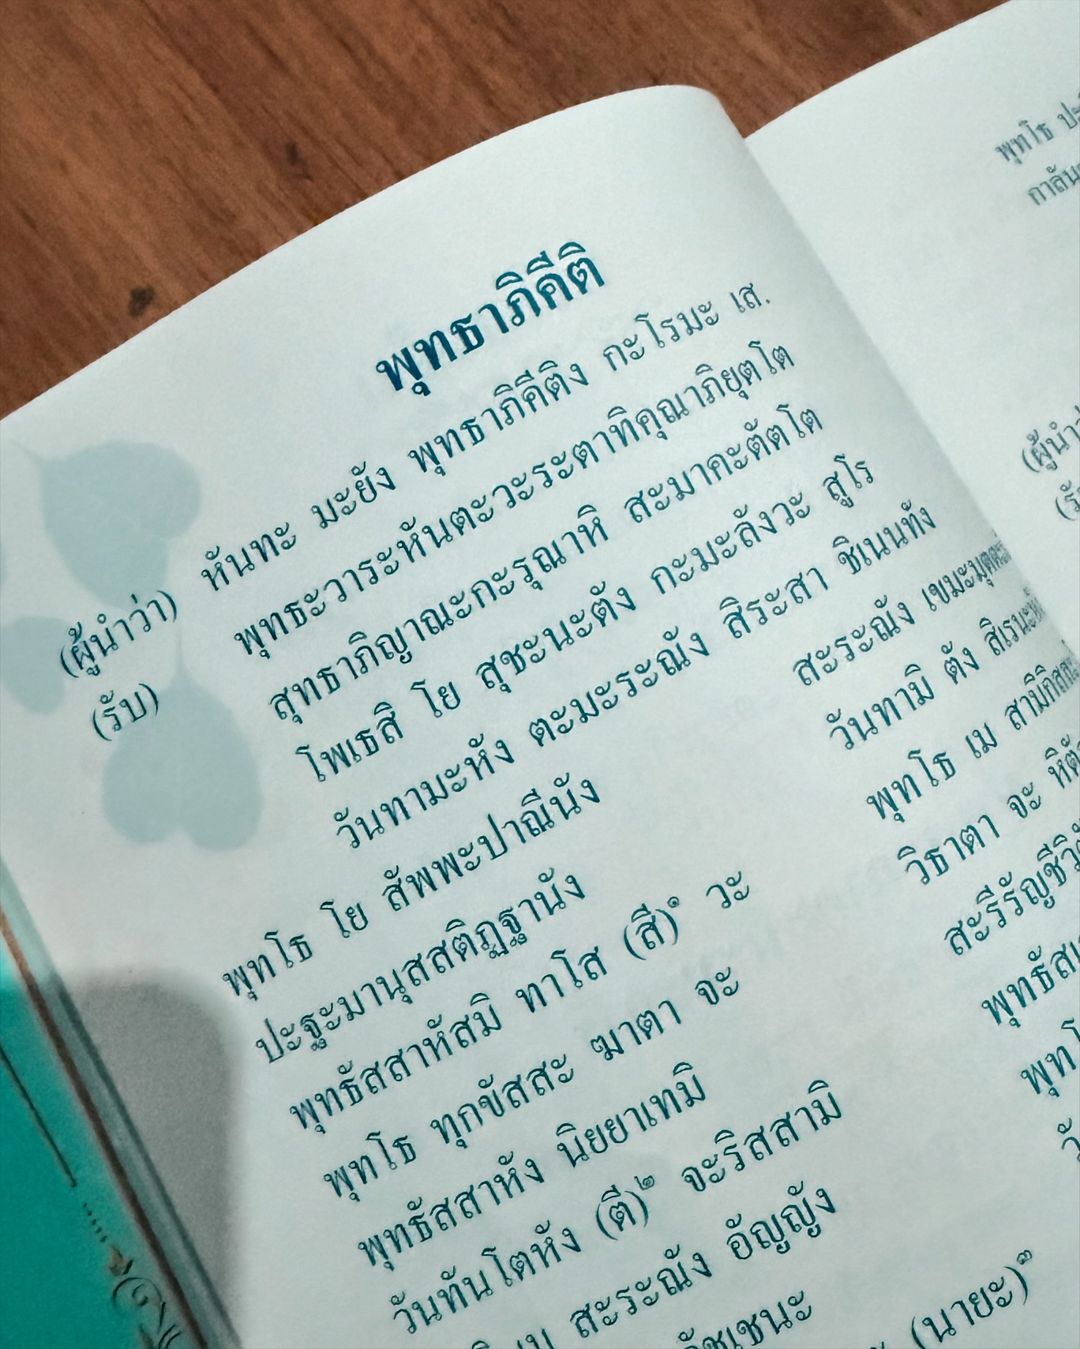 พุทธาภิคีติ
(ผู้นำว่า) หันทะ มะยัง พุทธาภิคีติง กะโรมะ เส.
(รับ) พุทธะวาระหันตะวะระตาทิคุณาภิยุตโต
สุทธาภิญาณะกะรุณาหิ สะมาคะตัตโต
โพเธสิ โย สุชะนะตัง กะมะลังวะ สูโร
วันทามะหัง ตะมะระณัง สิระสา ชิเนนทัง
พุทโธ โย สัพพะปาณีนัง สะระณัง
ปะฐะมานุสสติฏฐานัง วันทามิ ตัง
พุทธัสสาหัสมิ ทาโส (สี)๑ วะ พุทโธ เม
พุทโธ ทุกขัสสะ ฆาตา จะ วิธาตา จะ
พุทธัสสาหัง นิยยาเทมิ
วันทันโตหัง (ตี)๒ จะริสสามิ
สะระณัง อัญญัง
(นายะ)๓
พุทโธ